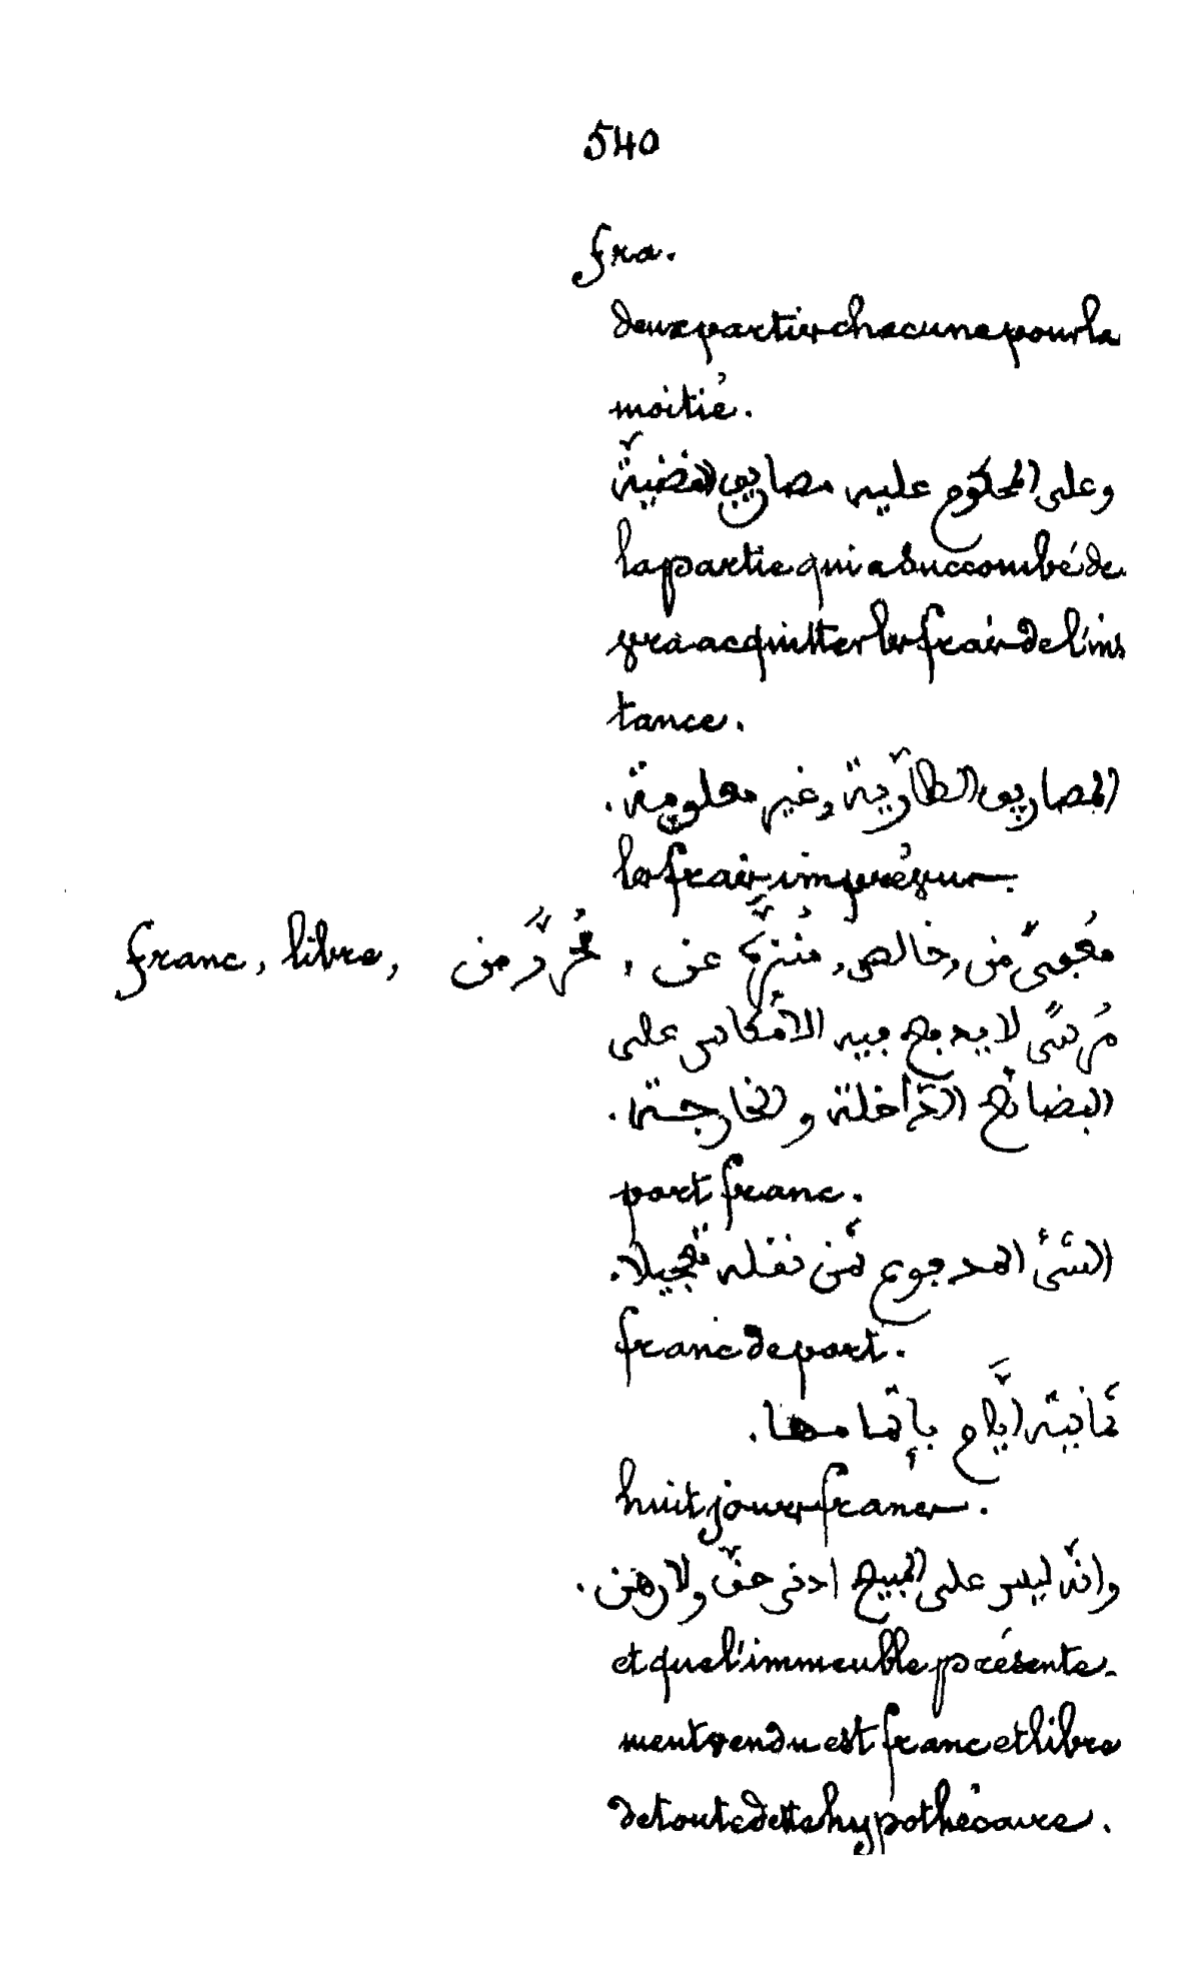 540
fra.
deux parties chacune pour la
moitié.
وعلى المحكوم عليه مصاريف القضيّة
la partie qui a succombé de
vra acquitter les frais de l'ins
tance.
المصاريف الطارّية وغير معلومة.
les frais imprévus.
franc, libre, مُعْفىً من, خالص, مُنزَّه عن, مُحرَّر من
مُرسًى لا يدفع فيه الأمكاس على
البضائع الدّاخلة والخارجة.
port franc.
الشّئ المدفوع ثمن نقله تعجيلا.
franc de port.
ثمانية ايّام بإتمامها.
huit jours francs.
وانّه ليس على المبيع ادنى حقّ ولا رهن.
et que l'immeuble présente-
ment vendu est franc et libre
de toute dette hypothécaire.